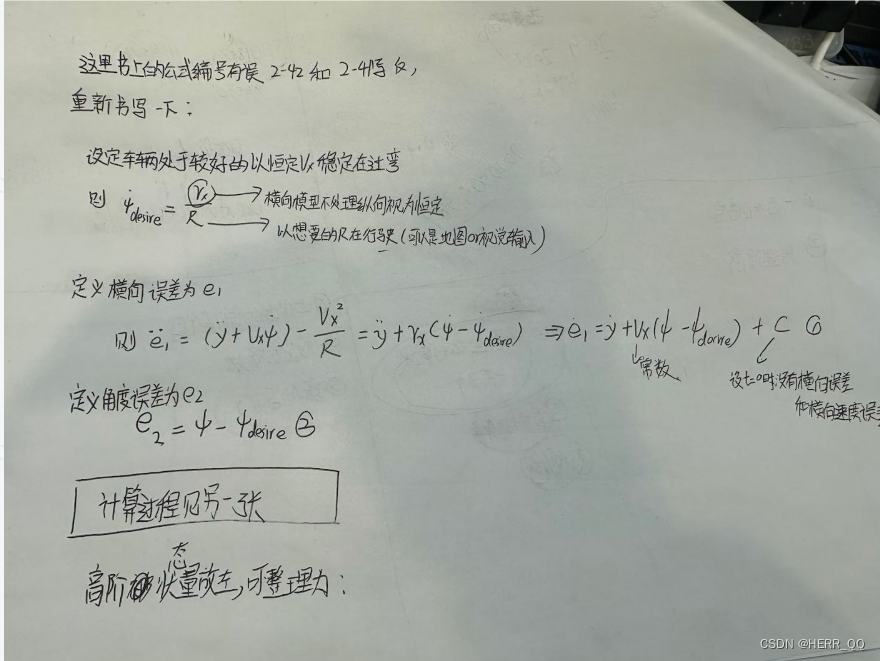 这里书上的公式编号有误 2-42 和 2-41写反,
重新书写一下:
设定车辆处于较好的以恒定Vx稳定在过弯
则 ψ̇desire = Vx/R → 横向模型不处理纵向视为恒定
→ 以想要的R在行驶(可以是地图or视觉输入)
定义横向误差为e₁
则 ë₁ = (ÿ+Vxψ̇) − Vx²/R = ÿ+Vx(ψ̇−ψ̇desire) ⇒ ė₁=ẏ+Vx(ψ−ψdesire) + C ①
常数
设t=0时没有横向误差
和横向速度误
定义角度误差为e₂
e₂ = ψ − ψdesire ②
计算过程见另一张
高阶状态量放左,可整理为:
CSDN @HERR_QQ